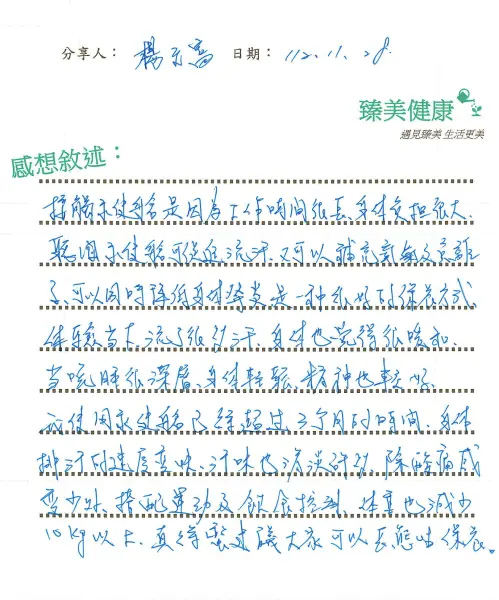 分享人： 楊 富 日期： 112.11.28.
臻美健康
遇見臻美 生活更美
感想敘述：
接觸水使船是因為工作時間很長、身体負担很大、
聽聞水使船可促進流汗、又可以補充氫氣及負離
子、可以同時降低身体發炎是一種很好的保養方式、
体驗當下流了很多汗、身体也覺得很暖和、
當晚睡很深層、身体輕鬆、精神也較好、
我使用水使船已經超過三个月的時間、身体
排汗的速度變快、汗味也淡淡許多、除酸痛感
變少外、搭配運動及飲食控制、体重也減少
10kg以上、真得蠻建議大家可以長態性保養。